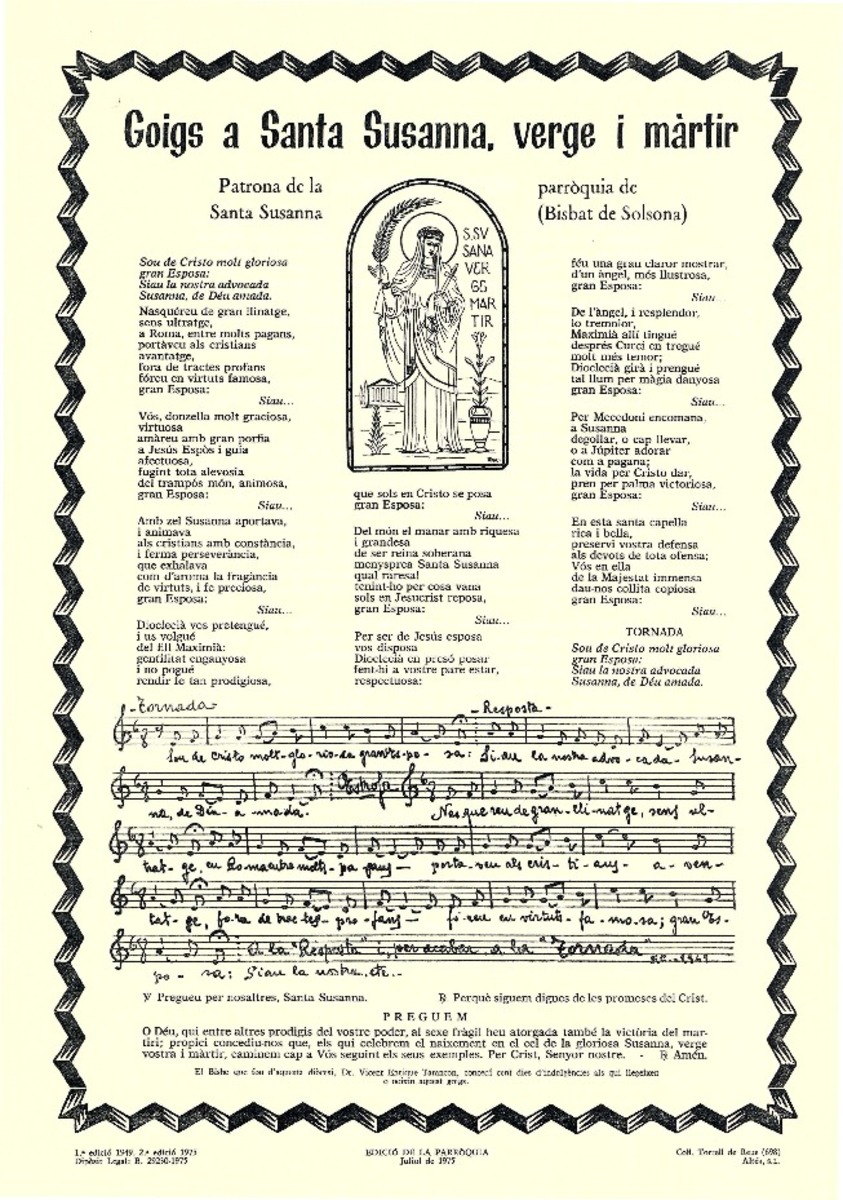 Goigs a Santa Susanna, verge i màrtir
Patrona de la parròquia de
Santa Susanna (Bisbat de Solsona)
S. SV
SANA
VER
GE
MAR
TIR
Sou de Cristo molt gloriosa
gran Esposa:
Siau la nostra advocada
Susanna, de Déu amada.
Nasquéreu de gran llinatge,
sens ultratge,
a Roma, entre molts pagans,
portàveu als cristians
avantatge,
fora de tractes profans
fóreu en virtuts famosa,
gran Esposa:
Siau...
Vós, donzella molt graciosa,
virtuosa
amàreu amb gran porfia
a Jesús Espòs i guia
afectuosa,
fugint tota alevosia
del trampós món, animosa,
gran Esposa:
Siau...
Amb zel Susanna aportava,
i animava
als cristians amb constància,
i ferma perseverància,
que exhalava
com d'aroma la fragància
de virtuts, i fe preciosa,
gran Esposa:
Siau...
Dioclecià vos pretengué,
i us volgué
del Ell Maximià:
gentilitat enganyosa
i no pogué
rendir fe tan prodigiosa,
que sols en Cristo se posa
gran Esposa:
Siau...
Del món el manar amb riquesa
i grandesa
de ser reina soberana
menysprea Santa Susanna
qual raresa!
tenint-ho per cosa vana
sols en Jesucrist reposa,
gran Esposa:
Siau...
Per ser de Jesús esposa
vos disposa
Dioclecià en presó posar
fent-hi a vostre pare estar,
respectuosa:
féu una gran claror mostrar,
d'un àngel, més llustrosa,
gran Esposa:
Siau...
De l'àngel, i resplendor,
io tremnior,
Maximià allí tingué
després Curci en tregué
molt més temor;
Dioclecià girà i prengué
tal llum per màgia danyosa
gran Esposa:
Siau...
Per Mecedoni encomana,
a Susanna
degollar, o cap llevar,
o a Júpiter adorar
com a pagana;
la vida per Cristo dar,
pren per palma victoriosa,
gran Esposa:
Siau...
En esta santa capella
rica i bella,
preservi vostra defensa
als devots de tota ofensa;
Vós en ella
de la Majestat immensa
dau-nos collita copiosa
gran Esposa:
Siau...
TORNADA
Sou de Cristo molt gloriosa
gran Esposa:
Siau la nostra advocada
Susanna, de Déu amada.
-Tornada- -Resposta-
Sou de Cristo molt-glo-rio-sa gran Es-po-sa: Si-au la nostra advo-ca-da- Susan-
Estrofa
na, de Déu-a-mada. Nasquereu de gran-lli-natge, sens ul-
trat-ge, en Roma entre molts-pa-gans- porta-veu als cris-ti-ans- a-ven-
tat-ge, fo-ra de trac-tes-pro-fans- fo-reu en virtuts-fa-mo-sa; gran Es-
A la "Resposta" i, per acabar, a la "Tornada"
po-sa: Siau la nostra, etc.-
℣ Pregueu per nosaltres, Santa Susanna. ℟ Perquè siguem dignes de les promeses del Crist.
PREGUEM
O Déu, qui entre altres prodigis del vostre poder, al sexe fràgil heu atorgada també la victòria del mar-
tiri; propici concediu-nos que, els qui celebrem el naixement en el cel de la gloriosa Susanna, verge
vostra i màrtir, caminem cap a Vós seguint els seus exemples. Per Crist, Senyor nostre. - ℟ Amén.
El Bisbe que fou d'aquesta diòcesi, Dr. Vicent Enrique Tarancon, concedí cent dies d'indulgències als qui llegeixen
o oeixin aquest goigs.
1.ª edició 1949. 2.ª edició 1975
Dipòsit Legal: B. 29250-1975
EDICIÓ DE LA PARRÒQUIA
Juliol de 1975
Coll. Torrell de Reus (698)
Altés, s.l.